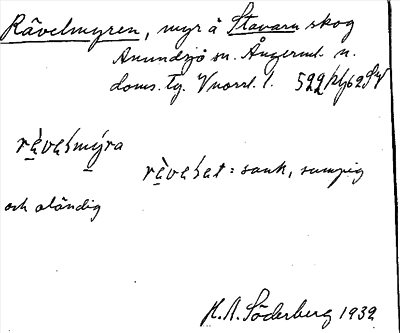 Rävelmyren, myr å Stavarn skog
Anundsjö sn. Ångerml. n.
doms. tg. Vnorrl. l. 522
rèvelmýra
rèvelet = sank, sumpig
och oländig
H. A. Söderberg 1932